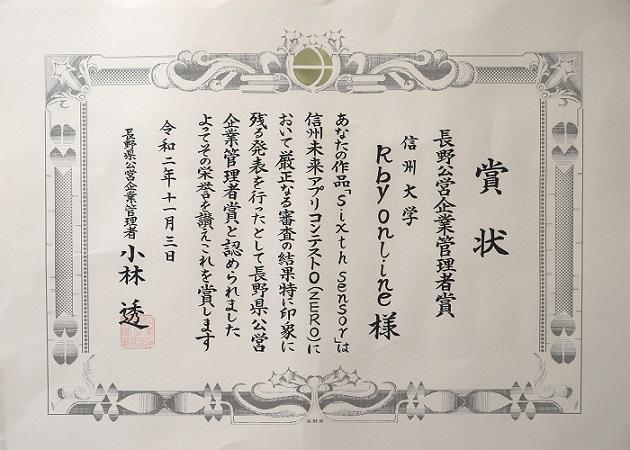 賞状
長野公営企業管理者賞
信州大学
R by Online 様
あなたの作品「sixth sensor」は
信州未来アプリコンテスト0(ZERO)に
おいて厳正なる審査の結果特に印象に
残る発表を行ったとして長野県公営
企業管理者賞と認められました
よってその栄誉を讃えこれを賞します
令和二年十一月三日
長野県公営企業管理者 小林 透
長野県